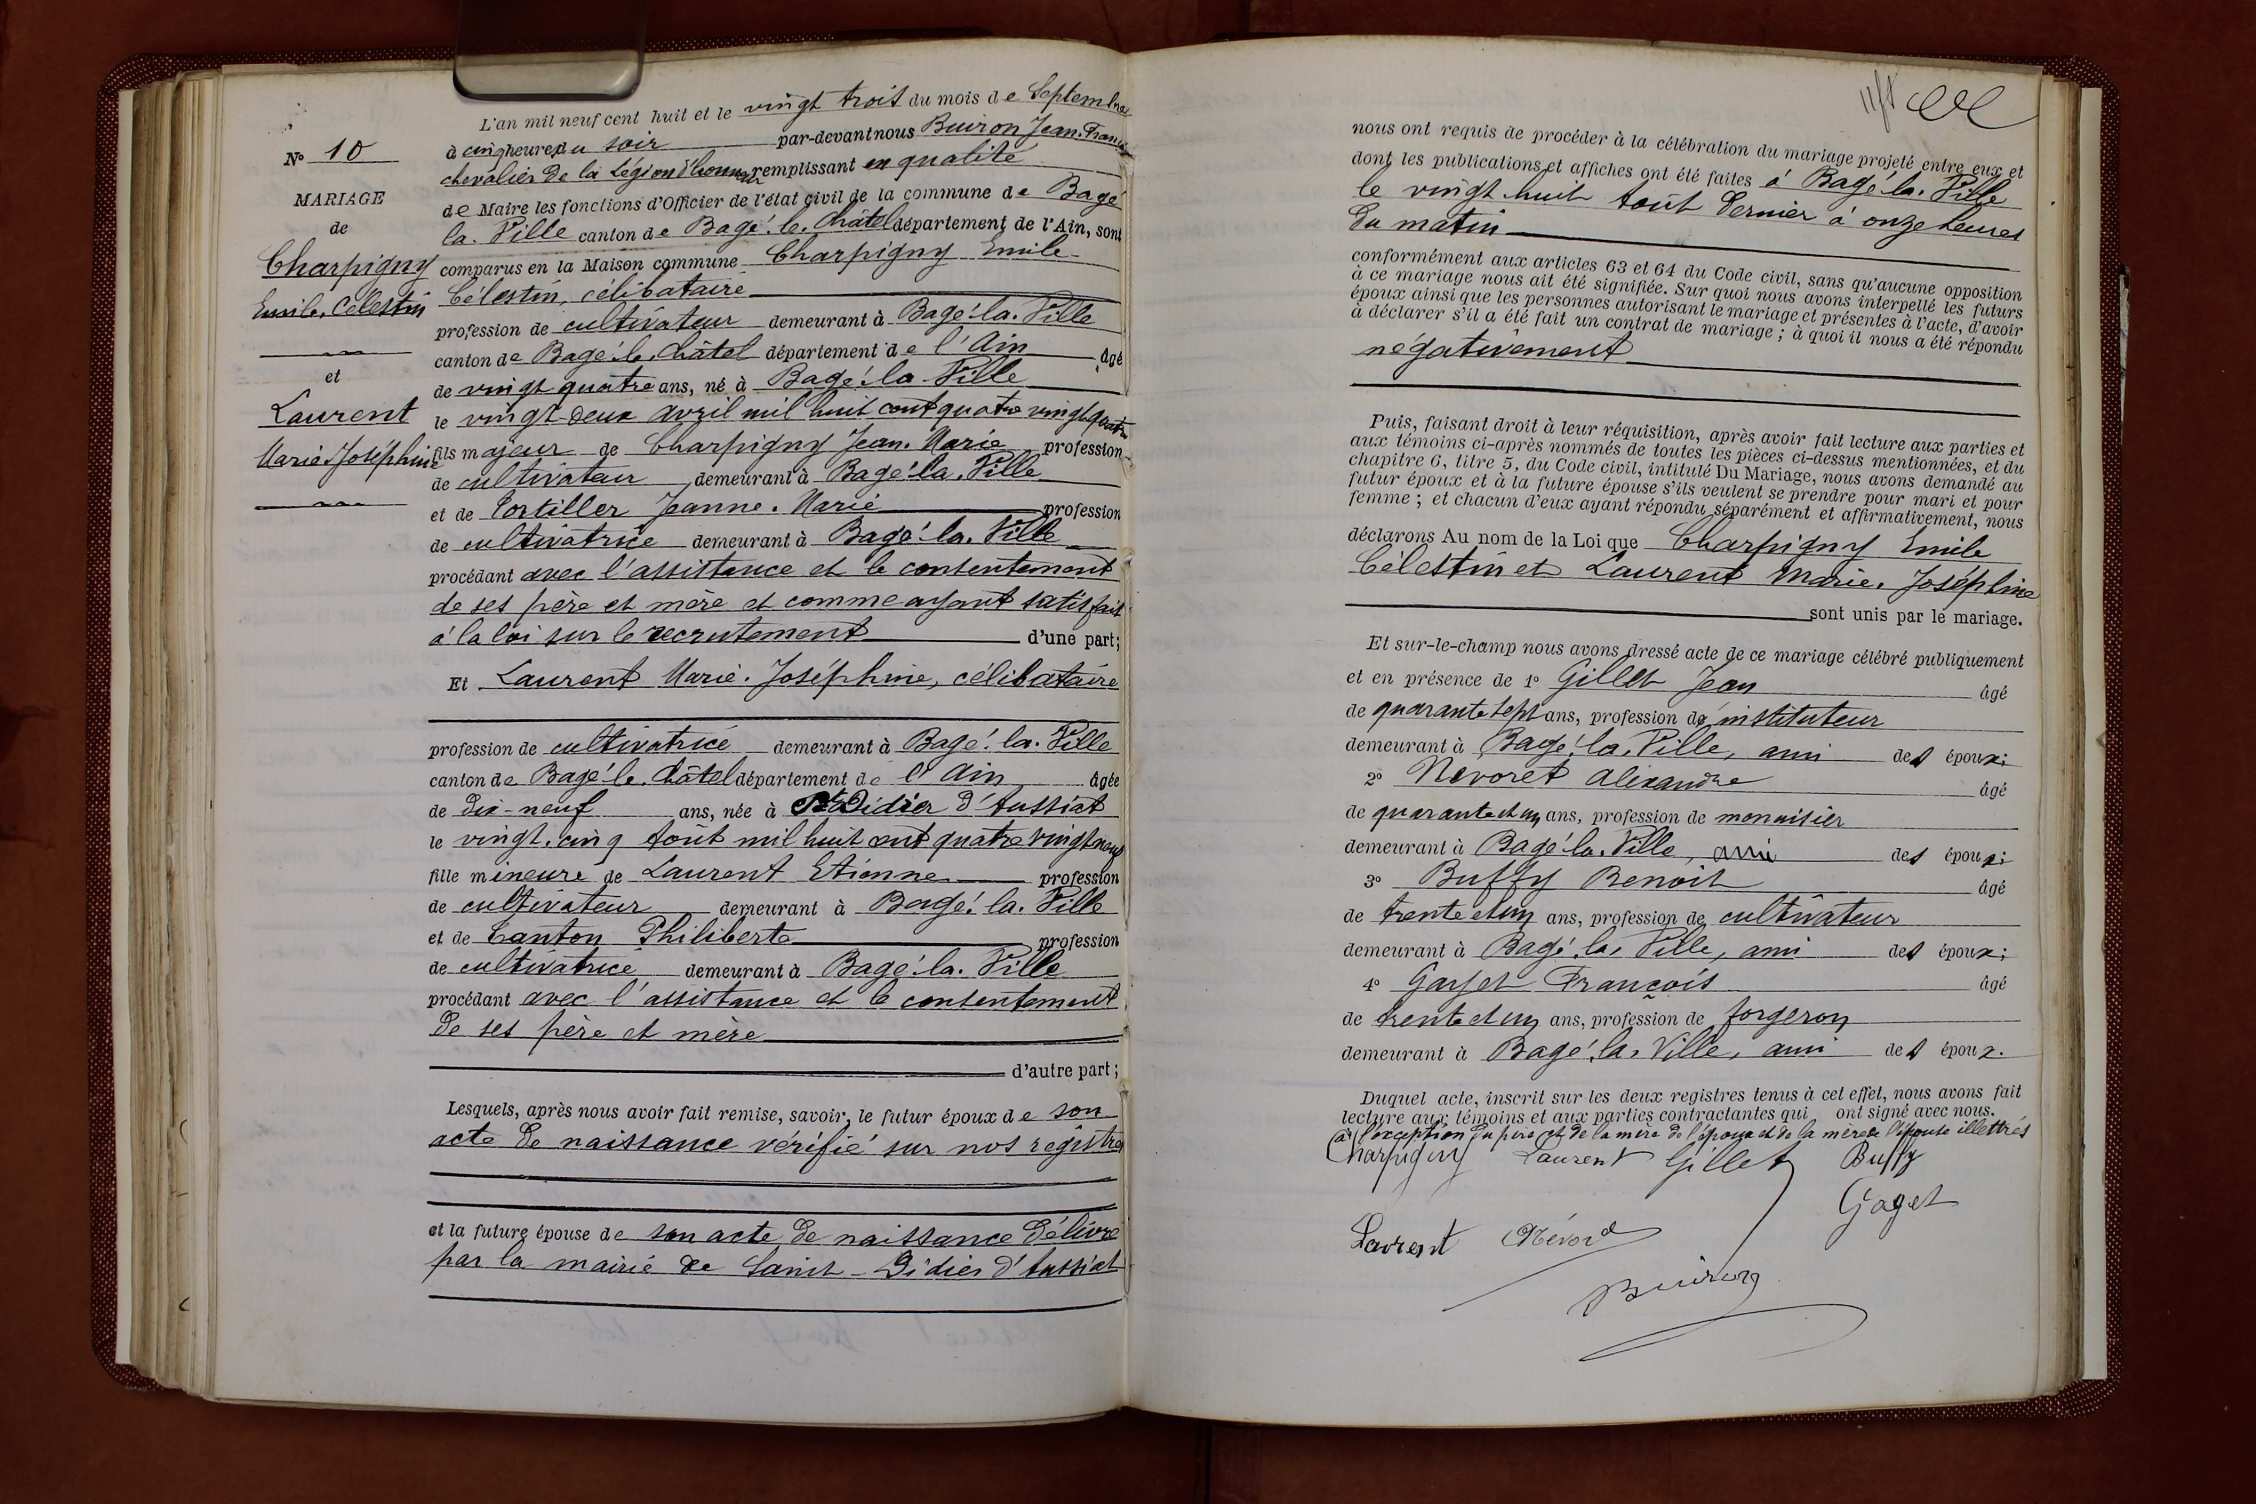 L'an mil neuf cent huit et le vingt trois du mois de Septembre
à cinq heures du soir par-devant nous Buiron Jean-François
chevalier de la Légion d'honneur remplissant en qualité
de Maire les fonctions d'Officier de l'état civil de la commune de Bagé
la-Ville canton de Bagé-le-Châtel département de l'Ain, sont
comparus en la Maison commune Charpigny Emile
Célestin, célibataire
profession de cultivateur demeurant à Bagé-la-Ville
canton de Bagé-le-Châtel département de l'Ain âgé
de vingt quatre ans, né à Bagé-la-Ville
le vingt-deux avril mil huit cent quatre vingt quatre
fils majeur de Charpigny Jean-Marie profession
de cultivateur demeurant à Bagé-la-Ville
et de Tortiller Jeanne-Marie profession
de cultivatrice demeurant à Bagé-la-Ville
procédant avec l'assistance et le consentement
de ses père et mère et comme ayant satisfait
à la loi sur le recrutement d'une part;
Et Laurent Marie-Joséphine, célibataire
profession de cultivatrice demeurant à Bagé-la-Ville
canton de Bagé-le-Châtel département de l'Ain âgée
de dix-neuf ans, née à St Didier d'Aussiat
le vingt-cinq Août mil huit cent quatre vingt neuf
fille mineure de Laurent Etienne profession
de cultivateur demeurant à Bagé-la-Ville
et de Canton Philiberte profession
de cultivatrice demeurant à Bagé-la-Ville
procédant avec l'assistance et le consentement
de ses père et mère
d'autre part;
Lesquels, après nous avoir fait remise, savoir, le futur époux de son
acte de naissance vérifié sur nos registres
et la future épouse de son acte de naissance délivré
par la mairie de Saint-Didier d'Aussiat
N° 10
MARIAGE
de
Charpigny
Emile, Célestin
et
Laurent
Marie Joséphine
nous ont requis de procéder à la célébration du mariage projeté entre eux et
dont les publications et affiches ont été faites à Bagé-la-Ville
le vingt huit Août dernier à onze heures
du matin
conformément aux articles 63 et 64 du Code civil, sans qu'aucune opposition
à ce mariage nous ait été signifiée. Sur quoi nous avons interpellé les futurs
époux ainsi que les personnes autorisant le mariage et présentes à l'acte, d'avoir
à déclarer s'il a été fait un contrat de mariage; à quoi il nous a été répondu
négativement
Puis, faisant droit à leur réquisition, après avoir fait lecture aux parties et
aux témoins ci-après nommés de toutes les pièces ci-dessus mentionnées, et du
chapitre 6, titre 5, du Code civil, intitulé Du Mariage, nous avons demandé au
futur époux et à la future épouse s'ils veulent se prendre pour mari et pour
femme; et chacun d'eux ayant répondu séparément et affirmativement, nous
déclarons Au nom de la Loi que Charpigny Emile
Célestin et Laurent Marie-Joséphine
sont unis par le mariage.
Et sur-le-champ nous avons dressé acte de ce mariage célébré publiquement
et en présence de 1° Gillet Jean âgé
de quarante sept ans, profession d'instituteur
demeurant à Bagé-la-Ville, ami des époux;
2° Nevoret Alexandre âgé
de quarante et un ans, profession de menuisier
demeurant à Bagé-la-Ville, ami des époux;
3° Buffy Benoit âgé
de trente et un ans, profession de cultivateur
demeurant à Bagé-la-Ville, ami des époux;
4° Gayet François âgé
de trente et un ans, profession de forgeron
demeurant à Bagé-la-Ville, ami des époux.
Duquel acte, inscrit sur les deux registres tenus à cet effet, nous avons fait
lecture aux témoins et aux parties contractantes qui ont signé avec nous.
à l'exception du père et de la mère de l'époux et de la mère de l'épouse illettrés
Charpigny Laurent Gillet Buffy
Gayet
Laurent Névoret
Buiron